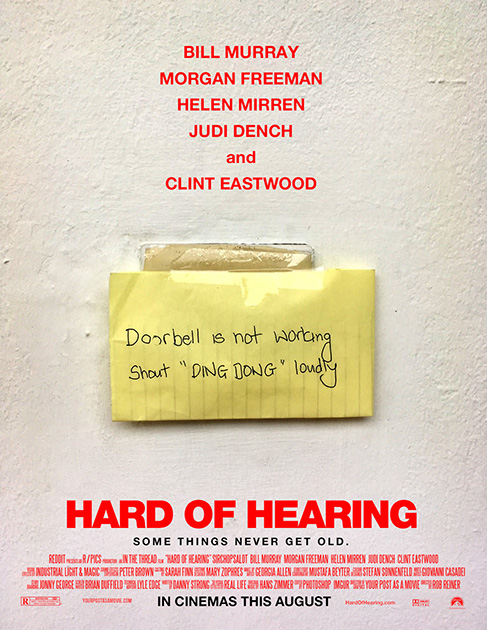 BILL MURRAY
MORGAN FREEMAN
HELEN MIRREN
JUDI DENCH
and
CLINT EASTWOOD
Doorbell is not working
Shout "DING DONG" loudly
HARD OF HEARING
SOME THINGS NEVER GET OLD.
REDDIT PRESENTS AN R/PICS PRODUCTION IN THE THREAD "HARD OF HEARING" SIRCHOPSALOT BILL MURRAY MORGAN FREEMAN HELEN MIRREN JUDI DENCH CLINT EASTWOOD
INDUSTRIAL LIGHT & MAGIC PETER BROWN SARAH FINN MARY ZOPHRES GEORGIA ALLEN MUSTAFA BEYTER STEFAN SONNENFELD GIOVANNI CASADEI
JONNY GEORGE BRIAN DUFFIELD LYLE EDGE DANNY STRONG REAL LIFE HANS ZIMMER PHOTOSHOP IMGUR YOUR POST AS A MOVIE ROB REINER
R YOURPOSTASAMOVIE.COM IN CINEMAS THIS AUGUST HardOfHearing.com